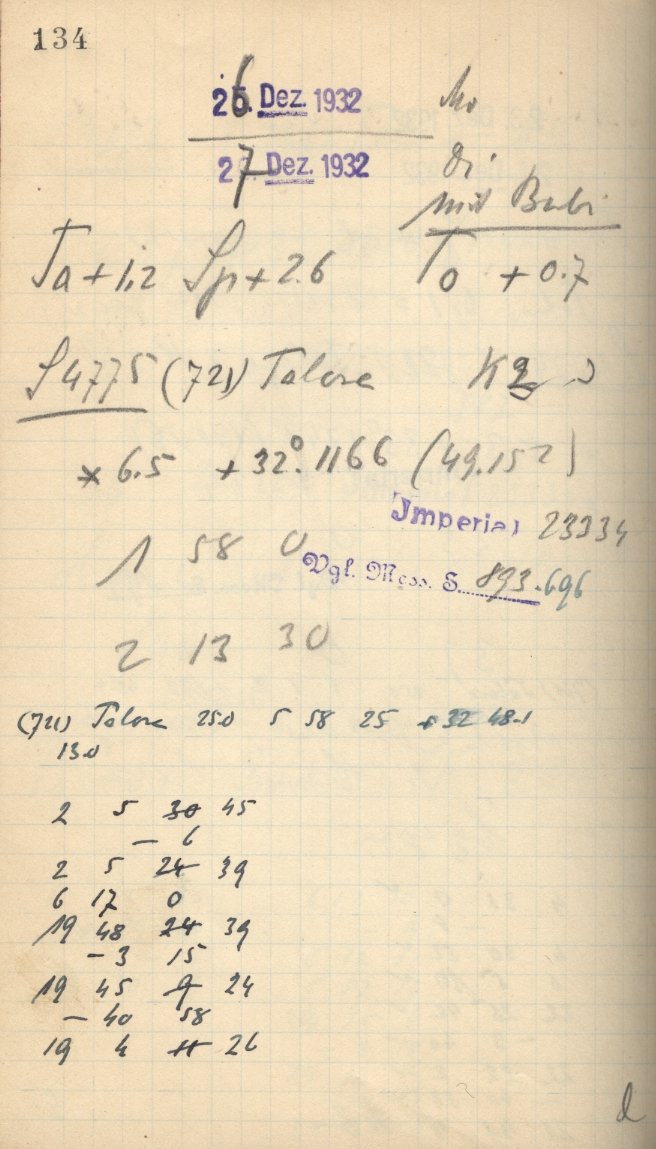 134
26. Dez. 1932 Mo
27 Dez. 1932 Di
mit Bubi
Ta + 1.2 Sp + 2.6 To + 0.7
S 4775 (721) Tabora K2
* 6.5 + 32°.1166 (49.152)
Imperial 23334
1 58 0
Vgl. Mess. S. 893.696
2 13 30
(721) Tabora 25.0 5 58 25 + 32 48.1
13.0
2 5 30 45
— 6
2 5 24 39
6 17 0
19 48 24 39
- 3 15
19 45 9 24
— 40 58
19 4 11 26
d